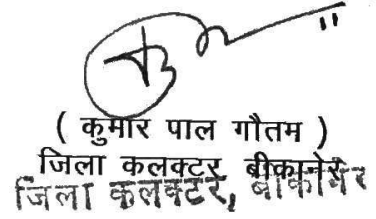 ( कुमार पाल गौतम )
जिला कलक्टर बीकानेर
जिला कलक्टर, बीकानेर